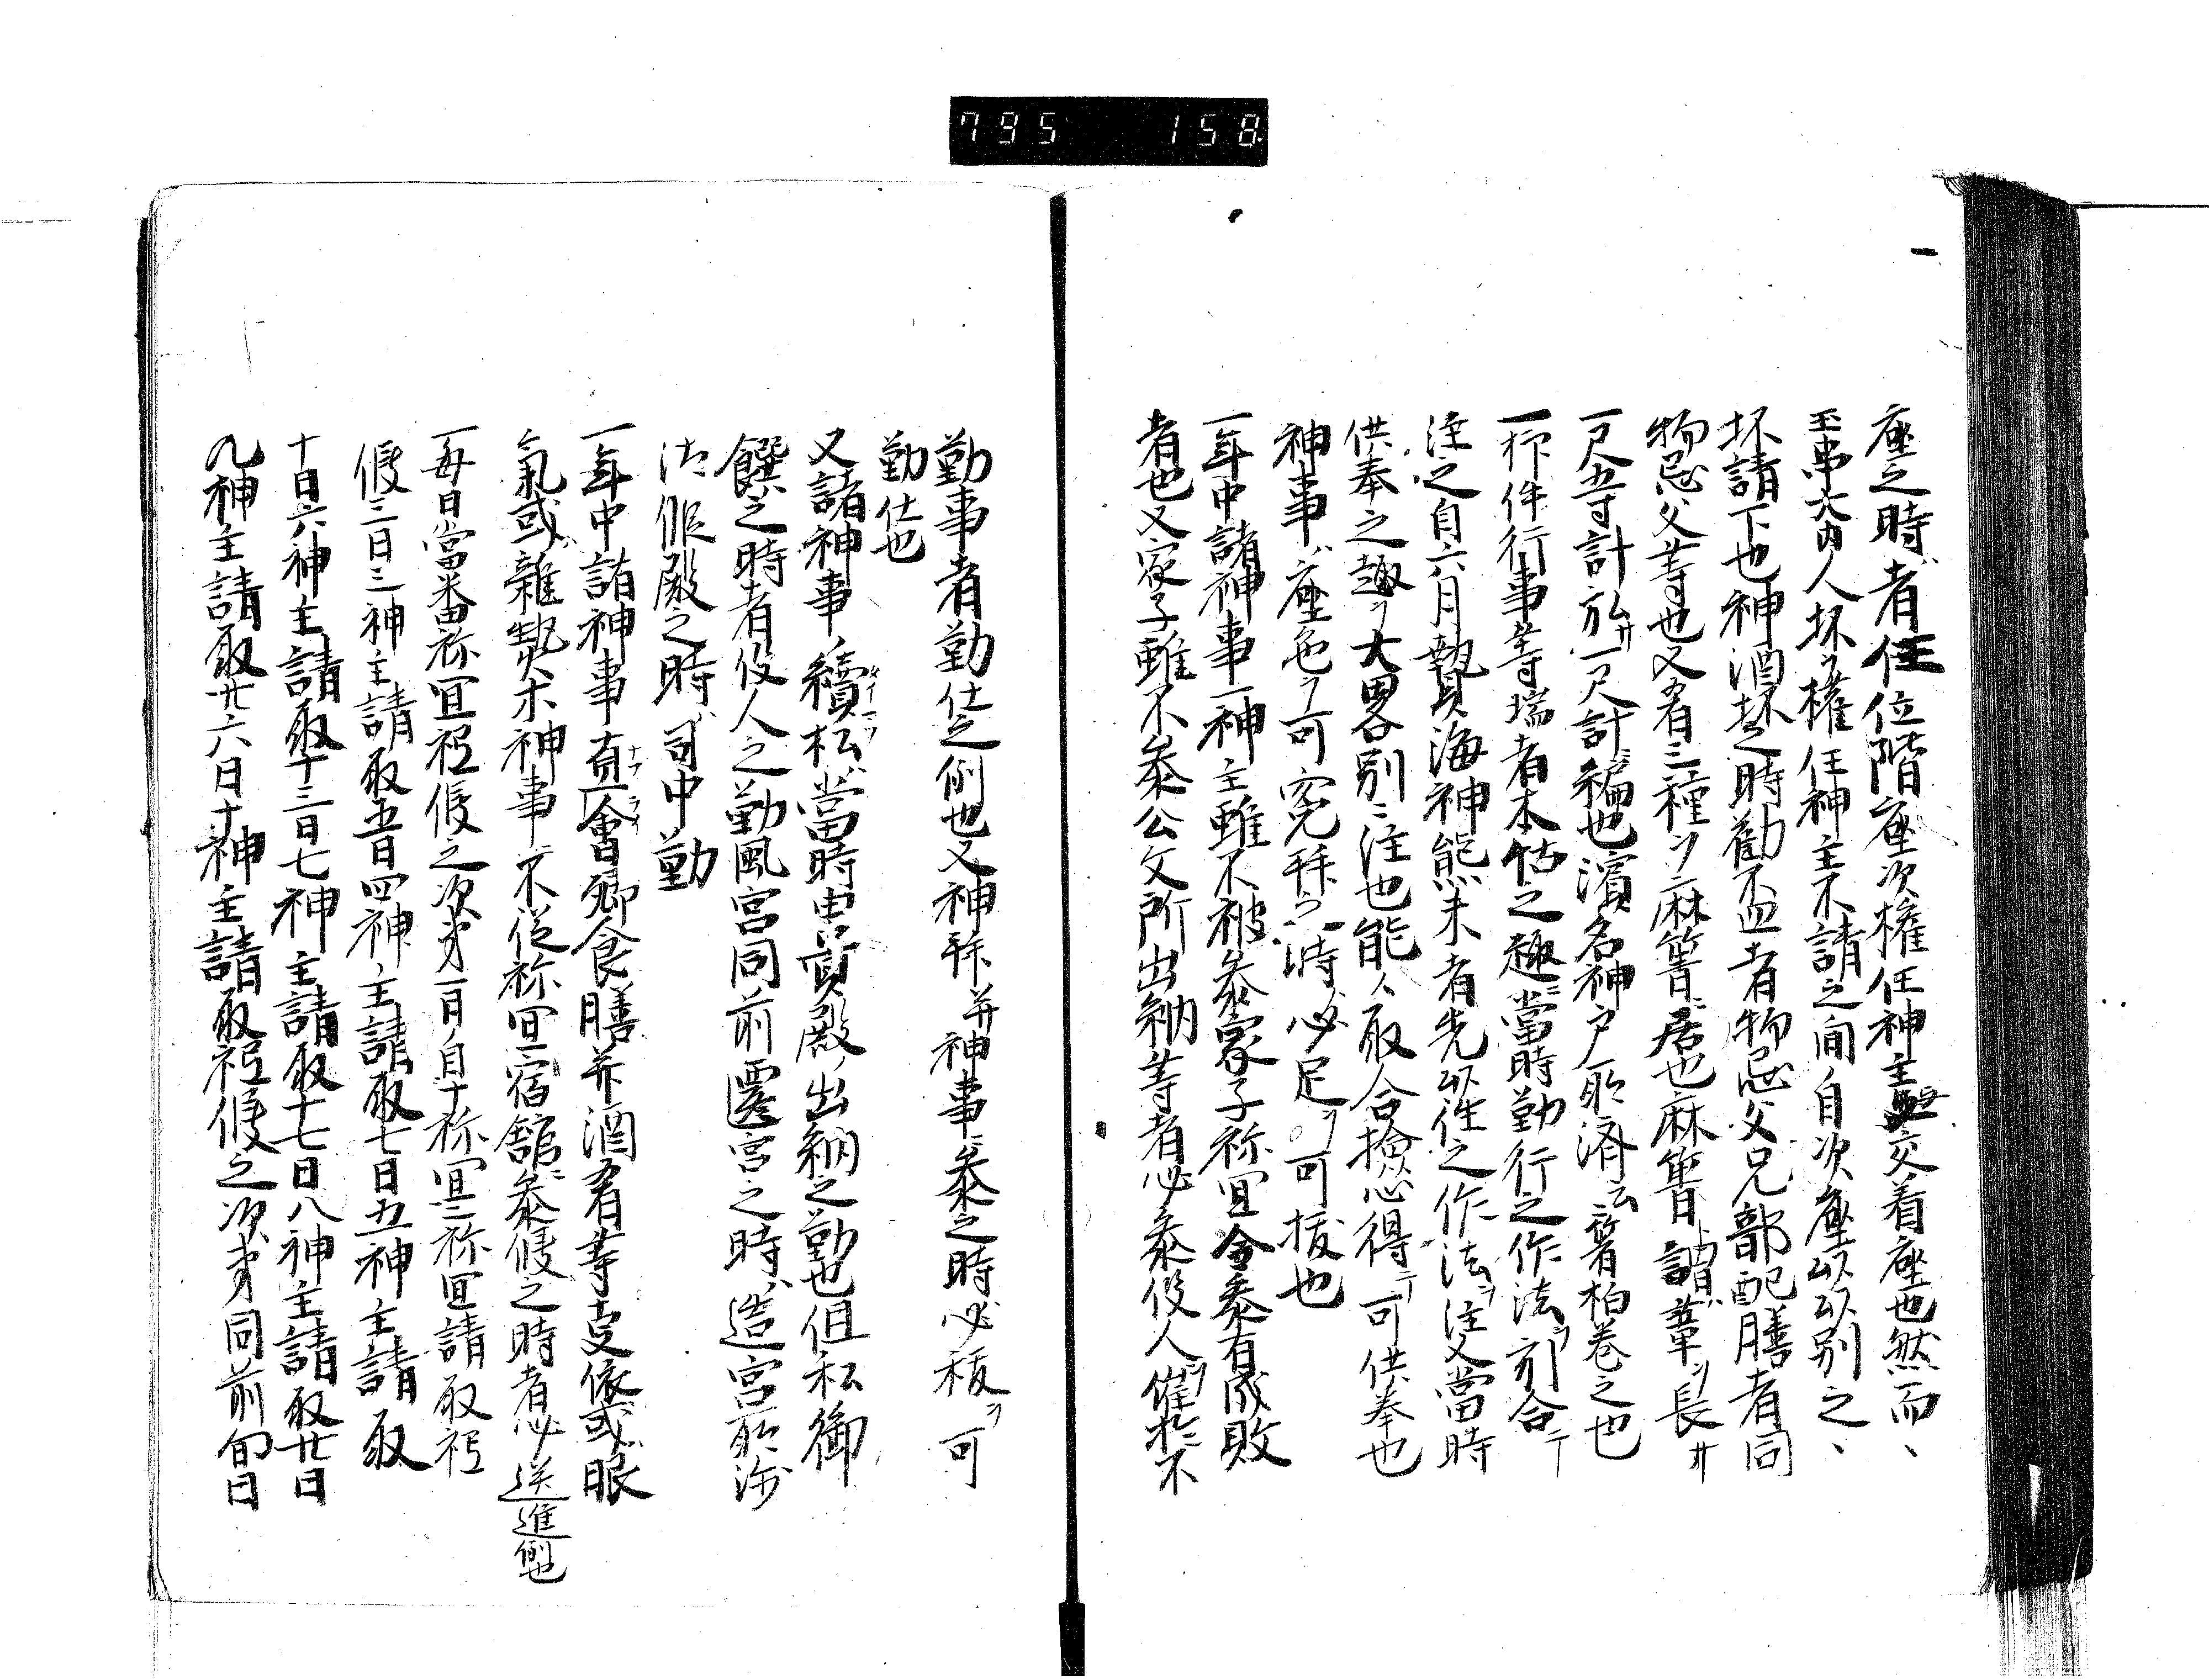 795 158
座之時者任位階座次権任神主交着座也然而、
玉串大内人坏ヲ権任神主不請之間自次座以以別之、
坏請下也神酒坏之時勧盃者物忌父兄部配膳者同
物忌父等也又肴三種ヲ麻笥ニ居也麻笥謂葦ヲ長サ
一尺五寸計弘サ一尺計ニ編也濱名神戸所済云箸柏巻之也
一抑件行事等端者本帖之趣ニ當時勤行之作法ヲ引合テ
注之自六月贄海神態末者先以往之作法ヲ注又當時
供奉之趣ヲ大畧別ニ注也能々取合撿心得テ可供奉也
神事ニ座色ヲ可究拜之時必足ヲ可抜也
一年中諸神事一神主雖不被参家子祢冝令参有成敗
者也又家子雖不参公文所出納等者必参役人催於不
勤事者勤仕之例也又神拜并神事ニ参之時必秡ヲ可
勤仕也
又諸神事ノ續松當時由貴殿ノ出納之勤也但私御
饌之時者役人之勤風宮同前遷宮之時ハ造宮所沙
汰假殿之時ハ司中勤
一年中諸神事直會饗食膳并酒肴等支依或服
氣或雜熱未神事ニ不従祢冝宿舘ニ参候之時者必送進例也
一毎日當番祢冝祗候之次第一日自十祢冝二祢冝請取祗
候三日三神主請取五日四神主請取七日五神主請取
十日六神主請取十三日七神主請取十七日八神主請取廿日
九神主請取廿六日十神主請取祗候之次第同前旬日